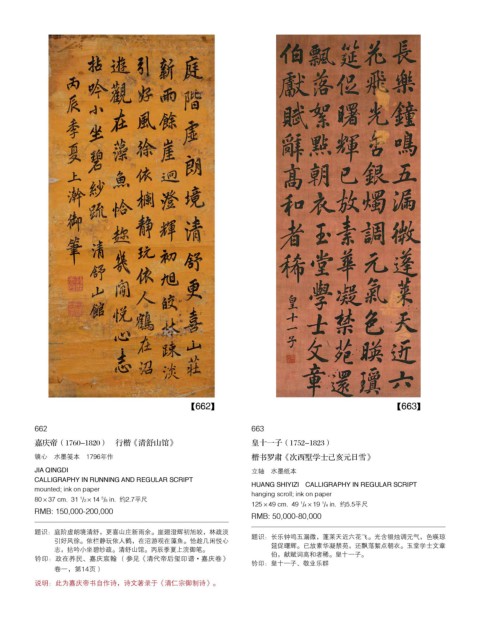 庭階虛朗境清舒更喜山莊
新雨餘崖迥澄輝初旭皎林踈淡
引好風徐依欄靜玩依人鶴在沼
遊觀在藻魚恰趁幾閒悅心志
拈吟小坐碧紗疏 清舒山館
丙辰季夏上澣御筆
長樂鐘鳴五漏微蓬萊天近六
花飛光含銀燭調元氣色暎璸
筵促曙輝已放素華凝禁苑還
飄落絮點朝衣玉堂學士文章
伯獻賦辭高和者稀
皇十一子
【662】
【663】
662
嘉庆帝（1760-1820） 行楷《清舒山馆》
镜心 水墨笺本 1796年作
JIA QINGDI
CALLIGRAPHY IN RUNNING AND REGULAR SCRIPT
mounted; ink on paper
80×37 cm. 31 1/2×14 5/8 in. 约2.7平尺
RMB: 150,000-200,000
题识：庭阶虚朗境清舒，更喜山庄新雨余。崖迥澄辉初旭皎，林疏淡
引好风徐。依栏静玩依人鹤，在沼游观在藻鱼。恰趁几闲悦心
志，拈吟小坐碧纱疏。清舒山馆。丙辰季夏上浣御笔。
钤印：政在养民、嘉庆宸翰 （参见《清代帝后玺印谱·嘉庆卷》
卷一，第14页）
说明：此为嘉庆帝书自作诗，诗文著录于《清仁宗御制诗》。
663
皇十一子（1752-1823）
楷书罗肃《次西墅学士己亥元日雪》
立轴 水墨纸本
HUANG SHIYIZI CALLIGRAPHY IN REGULAR SCRIPT
hanging scroll; ink on paper
125×49 cm. 49 1/4×19 1/4 in. 约5.5平尺
RMB: 50,000-80,000
题识：长乐钟鸣五漏微，蓬莱天近六花飞。光含银烛调元气，色暎琼
筵促曙辉。已放素华凝禁苑，还飘落絮点朝衣。玉堂学士文章
伯，献赋词高和者稀。皇十一子。
钤印：皇十一子、敬业乐群